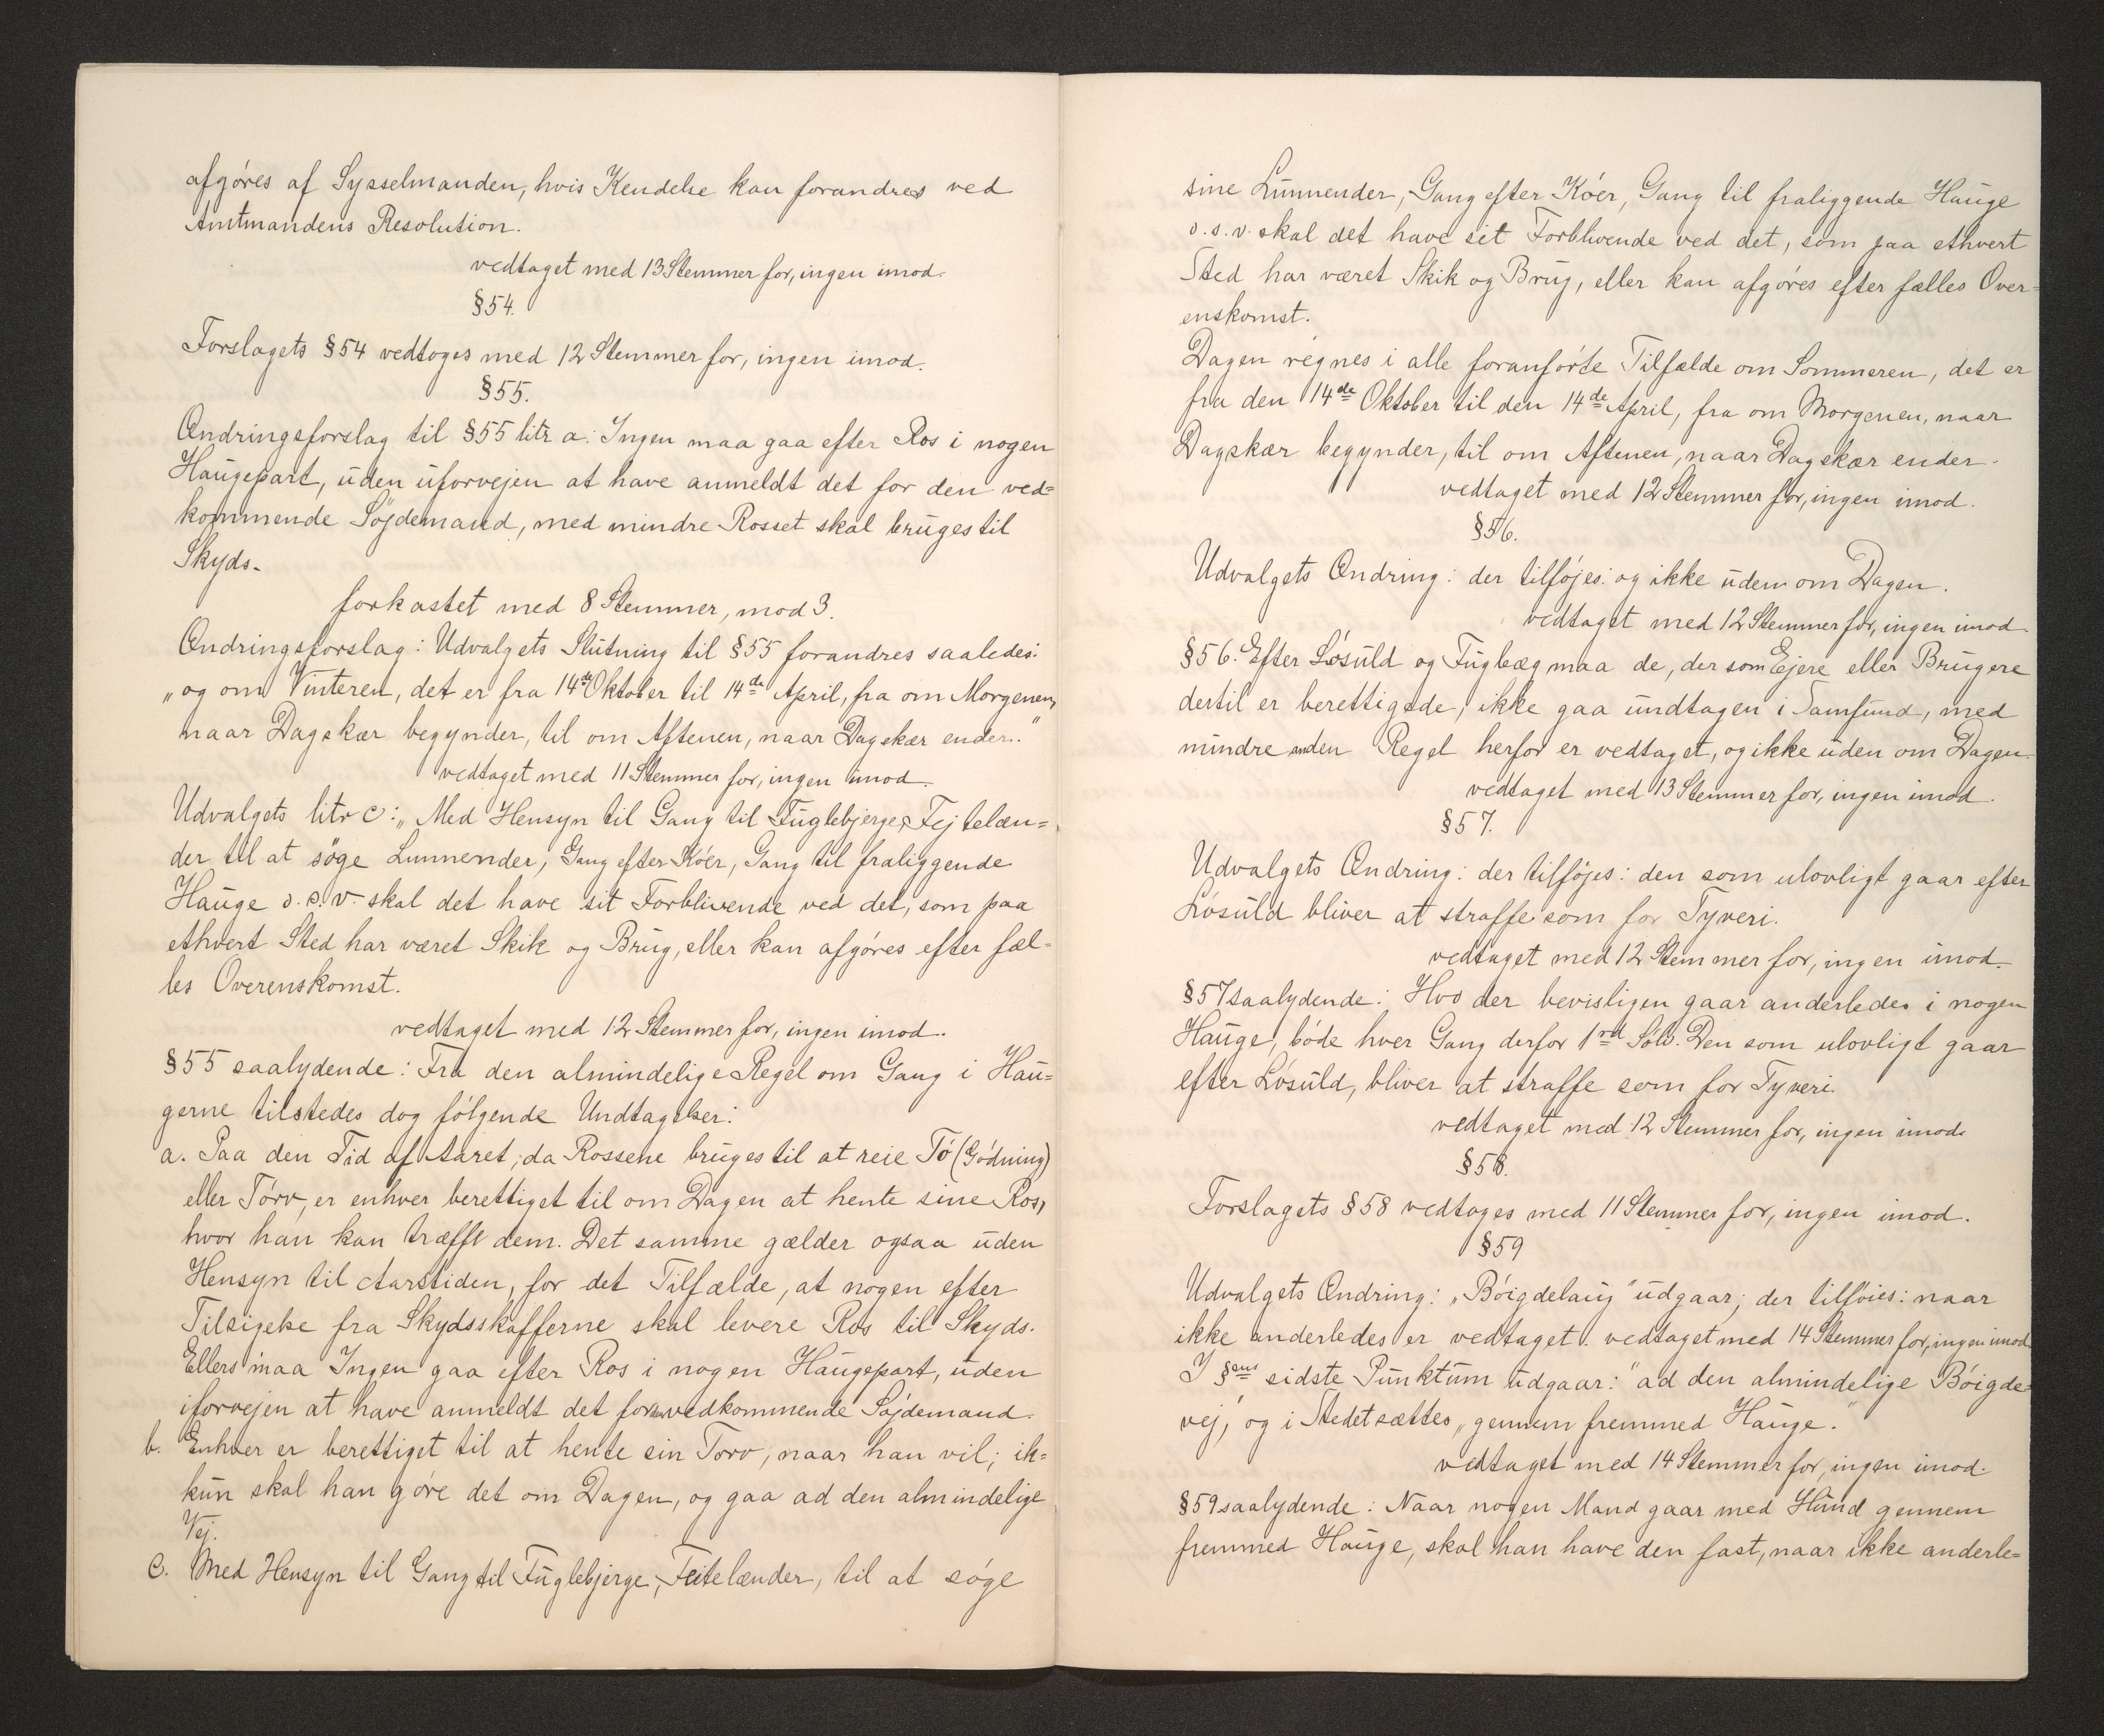 afgóres af Sysselmanden, hvis Kendelse kan forandres ved
Amtmandens Resolution.
vedtaget med 13 Stemmer for, ingen imod.
§54.
Forslagets §54 vedtoges med 12 Stemmer for, ingen imod.
§55.
Ændringsforslag til §55 litr a: Ingen maa gaa efter Ros i nogen
Haugepart, uden uforvejen at have anmeldt det for den ved=
kommende Söjdemand, med mindre Rosset skal bruges til
Skyds.
forkastet med 8 Stemmer, mod 3.
Ændringsforslag: Udvalgets Slutning til §55 forandres saaledes:
„og om Vinteren, det er fra 14de Oktober til 14de April, fra om Morgenen,
naar Dagskær begynder, til om Aftenen, naar Dagskær ender."
vedtaget med 11 Stemmer for, ingen imod.
Udvalgets litr c: „Med Hensyn til Gang til Fuglebjerge, Fejtelæn=
der til at söge Lunnender, Gang efter Kóer, Gang til fraliggende
Hauge o.s.v. skal det have sit Forblivende ved det, som paa
ethvert Sted har været Skik og Brug, eller kan afgóres efter fæl=
les Overenskomst.
vedtaget med 12 Stemmer for, ingen imod.
§55 saalydende: Fra den almindelige Regel om Gang i Hau=
gerne tilstedes dog fólgende Undtagelser:
a. Paa den Tid af Aaret, da Rossene bruges til at reie Tó (Gódning)
eller Tórv, er enhver berettiget til om Dagen at hente sine Ros,
hvor han kan træffe dem. Det samme gælder ogsaa uden
Hensyn til Aarstiden, for det Tilfælde, at nogen efter
Tilsigelse fra Skydsskafferne skal levere Ros til Skyds.
Ellers maa Ingen gaa efter Ros i nogen Haugepart, uden
iforvejen at have anmeldt det for den vedkommende Sójdemand.
b. Enhver er berettiget til at hente sin Torv, naar han vil; ik=
kun skal han góre det om Dagen, og gaa ad den almindelige
Vej.
c. Med Hensyn til Gang til Fuglebjerge, Feitelænder, til at sóge
sine Lunnender, Gang efter Kóer, Gang til fraliggende Hauge
o.s.v. skal det have sit Forblivende ved det, som paa ethvert
Sted har været Skik og Brug, eller kan afgóres efter fælles Over=
enskomst.
Dagen regnes i alle foranfórte Tilfælde om Sommeren, det er
fra den 14de Oktober til den 14de April, fra om Morgenen, naar
Dagskær begynder, til om Aftenen, naar Dagskær ender.
vedtaget med 12 Stemmer for, ingen imod.
§56.
Udvalgets Ændring: der tilfójes: og ikke uden om Dagen.
vedtaget med 12 Stemmer for, ingen imod.
§56. Efter Lósuld og Fuglæg maa de, der som Ejere eller Brugere
dertil er berettigede, ikke gaa undtagen i Samfund, med
mindre anden Regel herfor er vedtaget, og ikke uden om Dagen.
vedtaget med 13 Stemmer for, ingen imod.
§57.
Udvalgets Ændring: der tilfójes: den som ulovligt gaar efter
Lósuld bliver at straffe som for Tyveri.
vedtaget med 12 Stemmer for, ingen imod.
§57 saalydende: Hvo der bevisligen gaar anderledes i nogen
Hauge, bóde hver Gang derfor 1rd Sólv. Den som ulovligt gaar
efter Lósuld, bliver at straffe som for Tyveri.
vedtaget med 12 Stemmer for, ingen imod.
§58.
Forslagets §58 vedtoges med 11 Stemmer for, ingen imod.
§59
Udvalgets Ændring: „Bóigdelaug" udgaar; der tilfóies: naar
ikke anderledes er vedtaget. vedtaget med 14 Stemmer for, ingen imod
I §ens sidste Punktum udgaar: "ad den almindelige Bóigde=
vej", og i Stedet sættes „gennem fremmed Hauge."
vedtaget med 14 Stemmer for, ingen imod.
§59 saalydende: Naar nogen Mand gaar med Hund gennem
fremmed Hauge, skal han have den fast, naar ikke anderle=